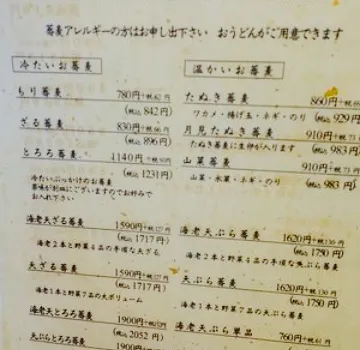 蕎麦アレルギーの方はお申し出下さい おうどんがご用意できます
冷たいお蕎麦
もり蕎麦 780円+税62円
(税込 842円)
ざる蕎麦 830円+税66円
(税込 896円)
とろろ蕎麦 1140円
(税込 1231円)
冷たいぶっかけのお蕎麦
お入れ下さい
海老天ざる蕎麦 1590円+税127円
(税込 1717円)
海老2本と野菜4品の手頃な天ざる
天ざる蕎麦 1590円+税127円
(税込 1717円)
海老1本と野菜7品の大ボリューム
海老天とろろ蕎麦 1900円
(税込 2052円)
天ぷらとろろ蕎麦 1900円
温かいお蕎麦
たぬき蕎麦 860円
ワカメ・揚げ玉・ネギ・のり (税込 929円)
月見たぬき蕎麦 910円
たぬき蕎麦に生卵が入ります (税込 983円)
山菜蕎麦 910円
山菜・水菜・ネギ・のり (税込 983円)
海老天ぷら蕎麦 1620円+税130円
(税込 1750円)
海老2本と野菜4品の手頃な天ぷら蕎麦
天ぷら蕎麦 1620円+税130円
(税込 1750円)
海老1本と野菜7品
海老天ぷら単品 760円